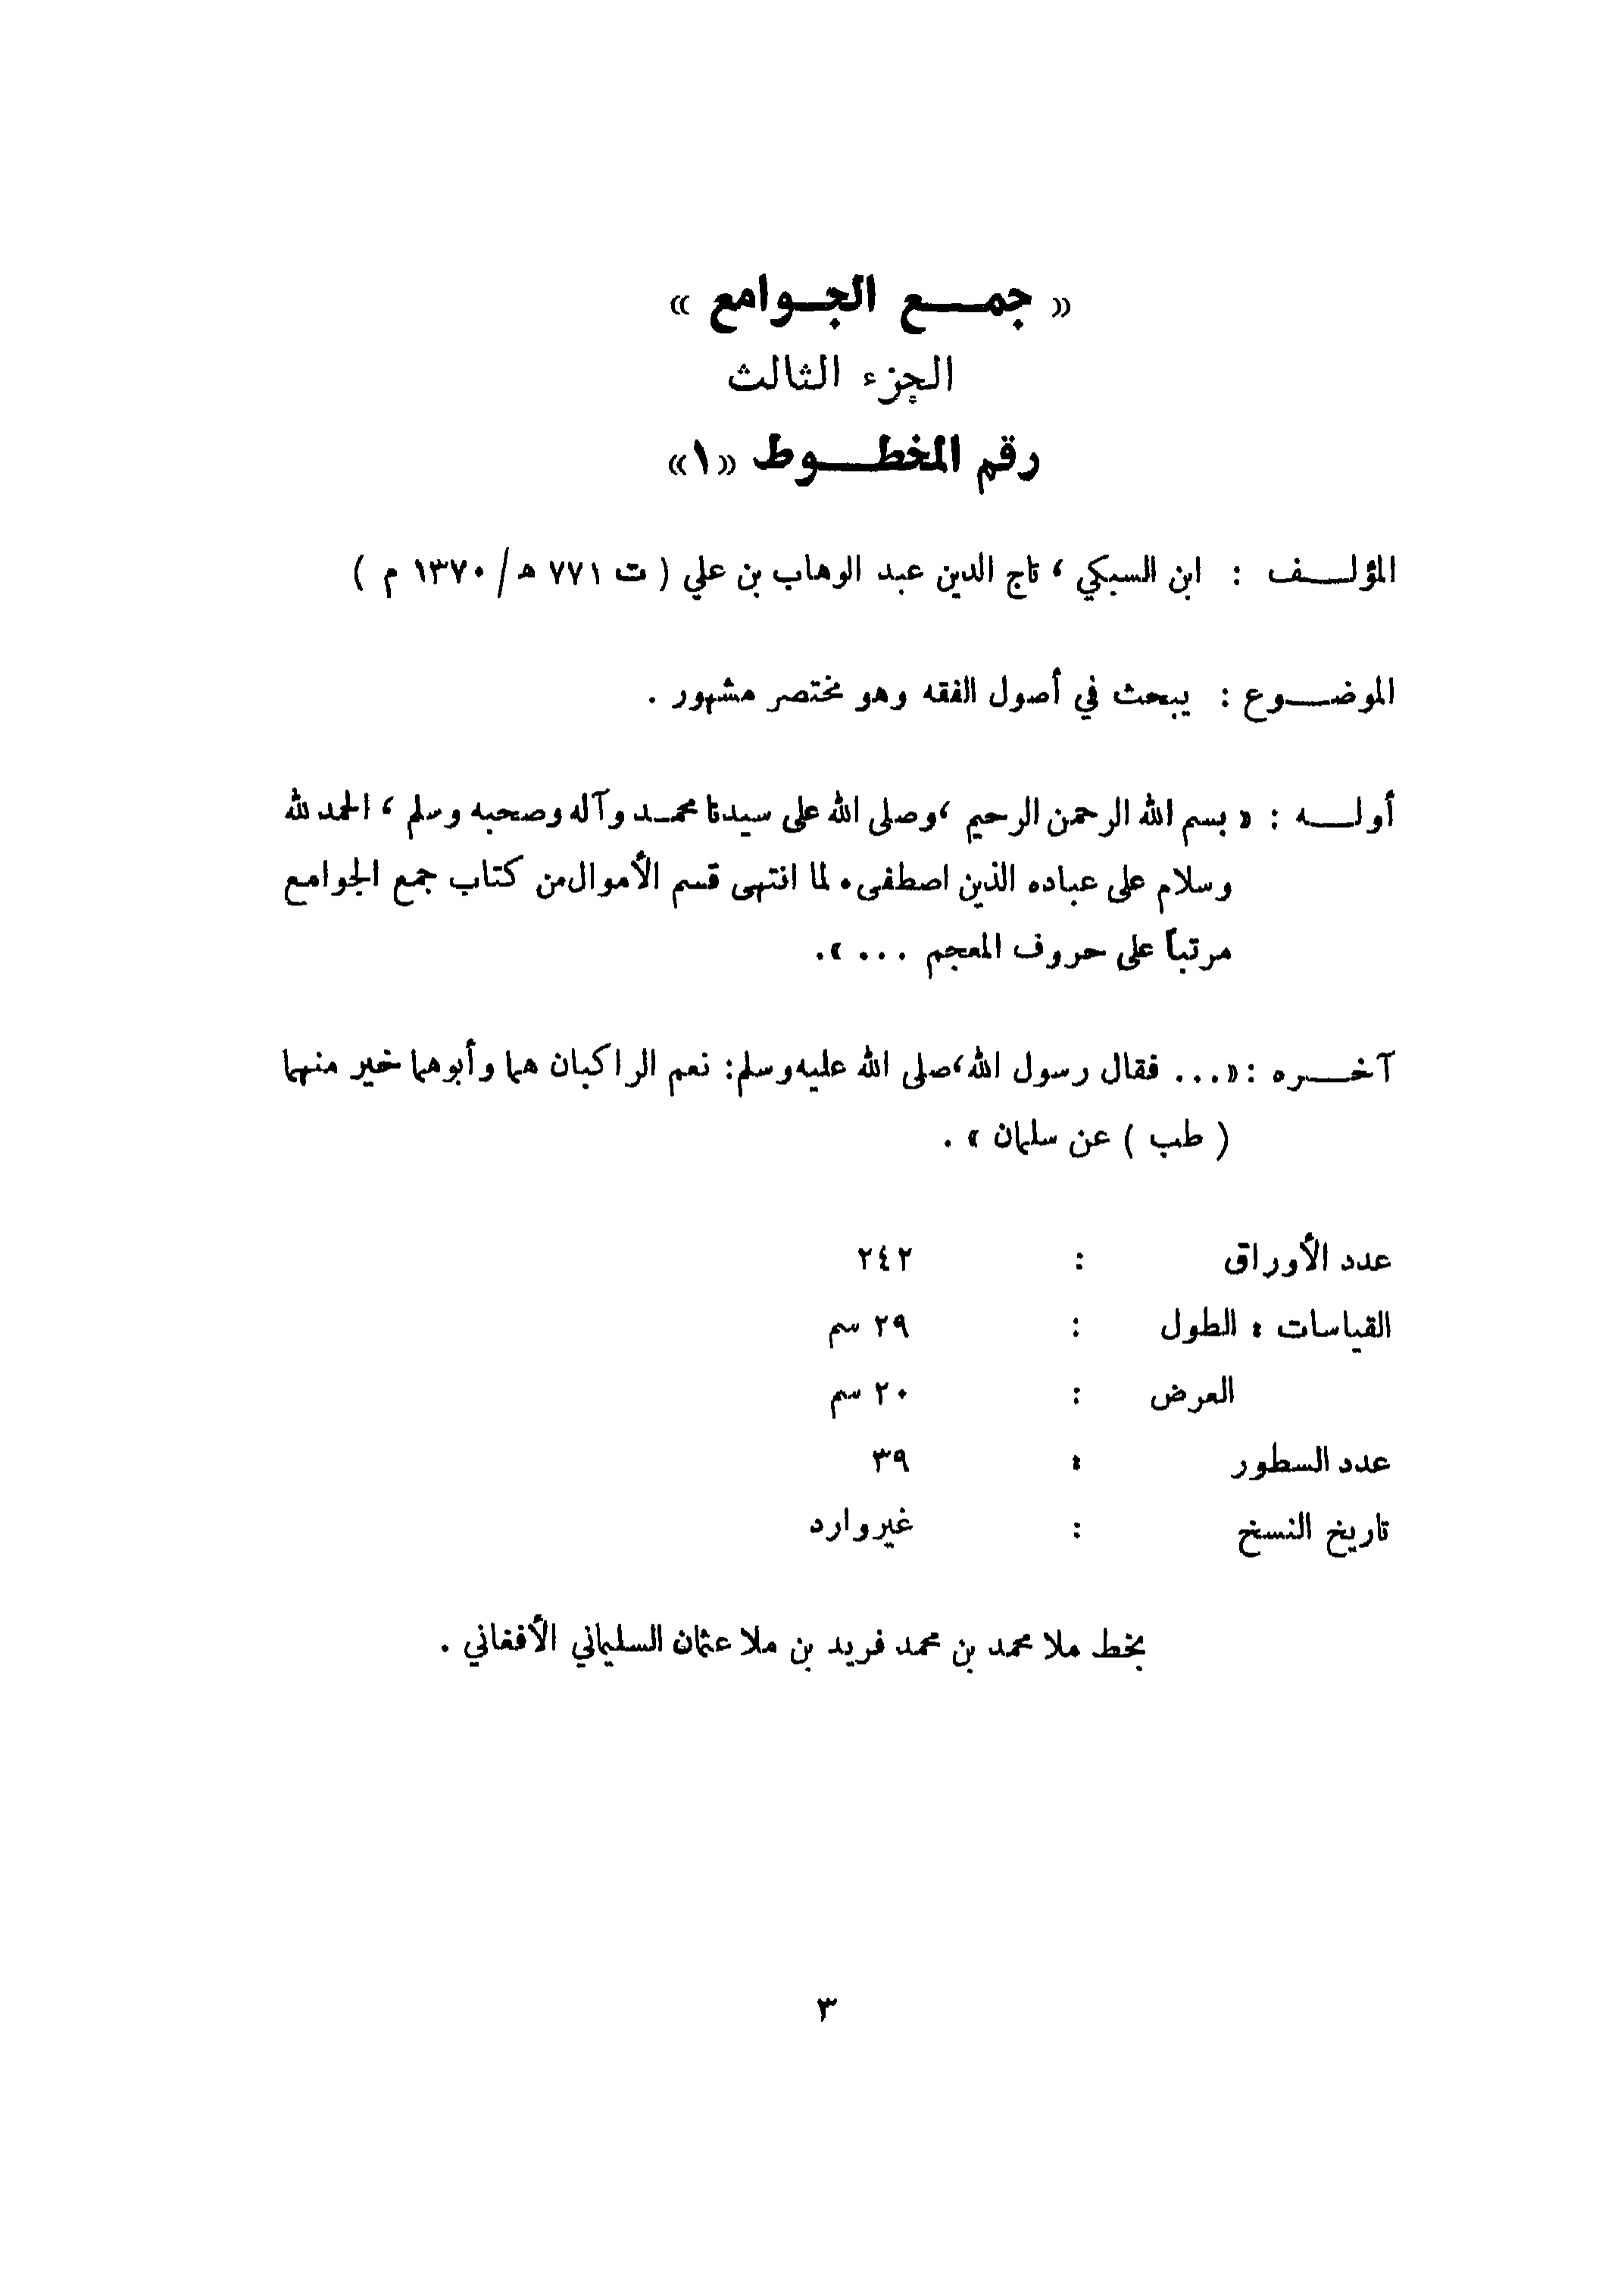 « جمـــع الجـوامع »
الجزء الثالث
رقم المخطـــوط «١»
المؤلـــف : ابن السبكي ، تاج الدين عبد الوهاب بن علي ( ت ٧٧١ هـ / ١٣٧٠ م )
الموضـــوع : يبحث في أصول الفقه وهو مختصر مشهور .
أولـــه : « بسم الله الرحمن الرحيم ، وصلى الله على سيدنا محمـد وآله وصحبه وسلم ، الحمد لله
وسلام على عباده الذين اصطفى . لما انتهى قسم الأموال من كتاب جمع الجوامع
مرتباً على حروف المعجم ... » .
آخـــره : « ... فقال رسول الله ، صلى الله عليه وسلم : نعم الراكبان هما وأبوهما خير منهما
( طب ) عن سلمان » .
عدد الأوراق : ٢٤٢
القياسات : الطول : ٢٩ سم
العرض : ٢٠ سم
عدد السطور : ٣٩
تاريخ النسخ : غير وارد
بخط ملا محمد بن محمد فريد بن ملا عثمان السليماني الأفغاني .
٣